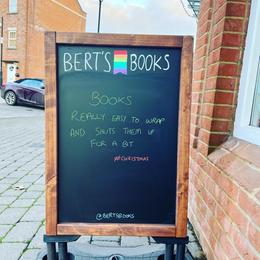 BERT'S BOOKS
BOOKS
REALLY EASY TO WRAP
AND SHUTS THEM UP
FOR A BIT
#CHRISTMAS
@BERTSBOOKS